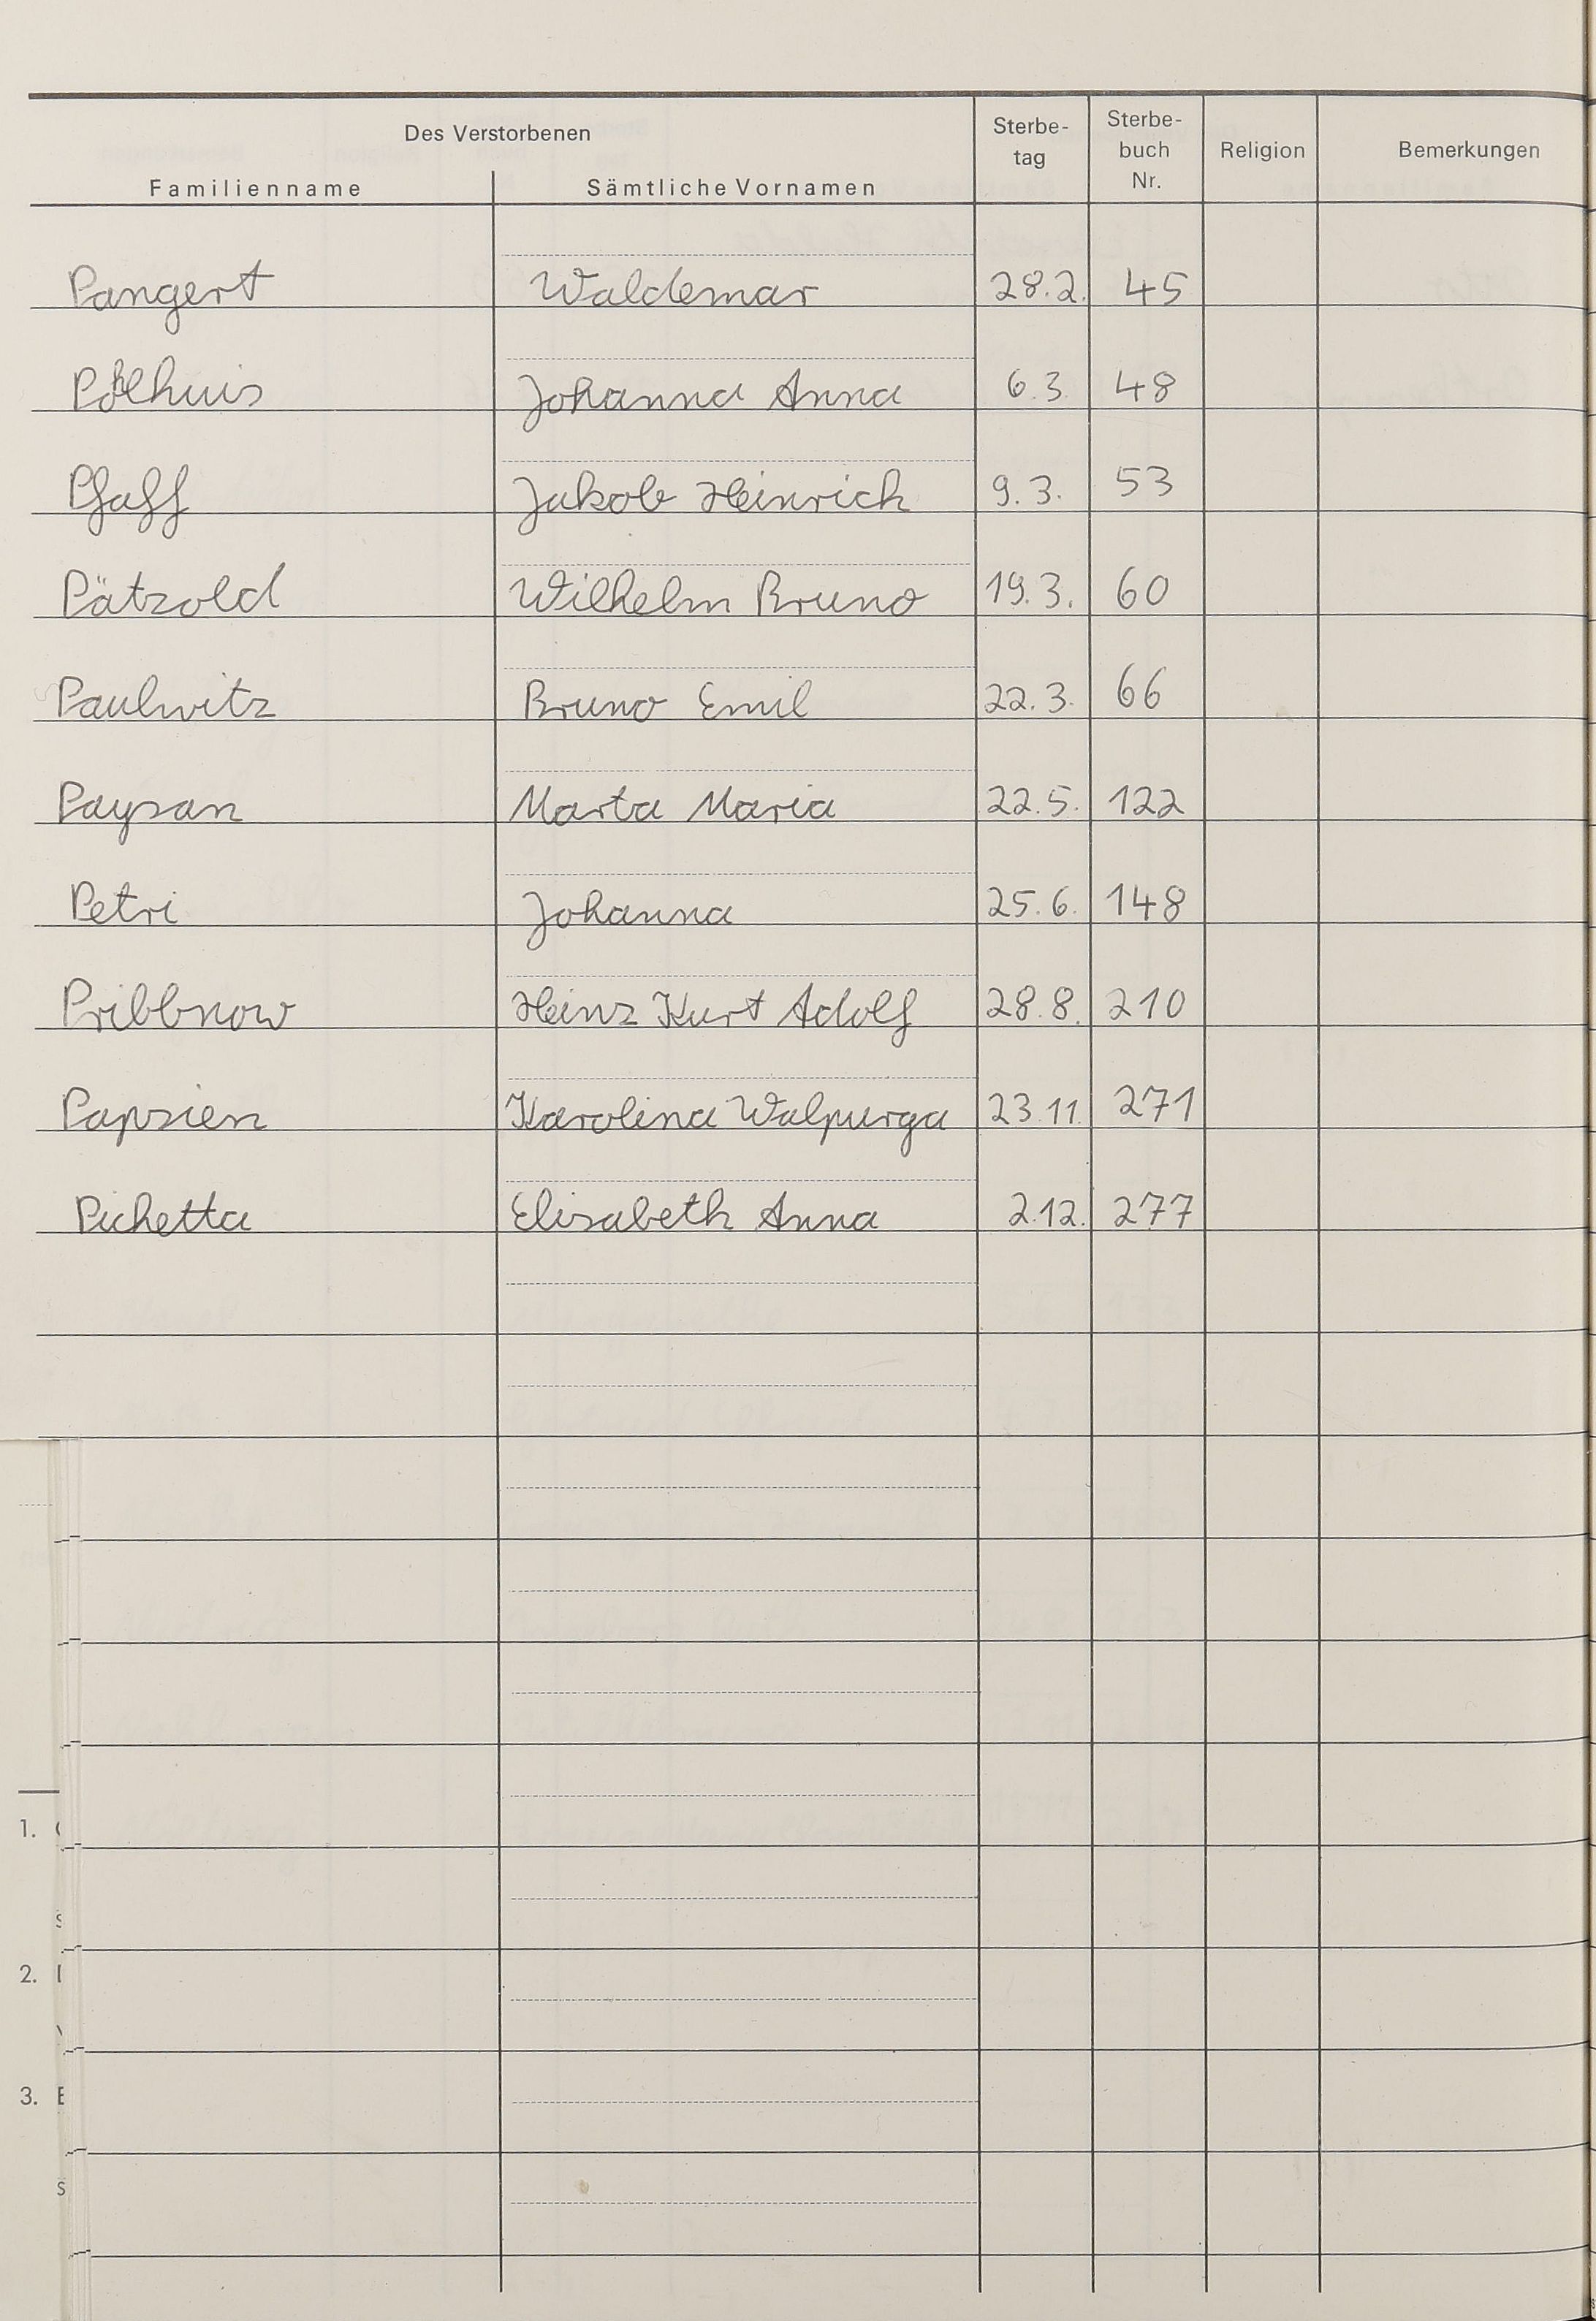 Des Verstorbenen
Familienname Sämtliche Vornamen Sterbe-tag Sterbe-buch Nr. Religion Bemerkungen
Pangert Waldemar 28.2. 45
Johanna Anna 6.3. 48
Pfaff Jakob Heinrich 9.3. 53
Pätzold Wilhelm Bruno 19.3. 60
Paulwitz Bruno Emil 22.3. 66
Paysan Marta Maria 22.5. 122
Petri Johanna 25.6. 148
Pribbnow Heinz Kurt Adolf 28.8. 210
Papsien Karolina Walpurga 23.11. 271
Pichetta Elisabeth Anna 2.12. 277
1.
2.
3.